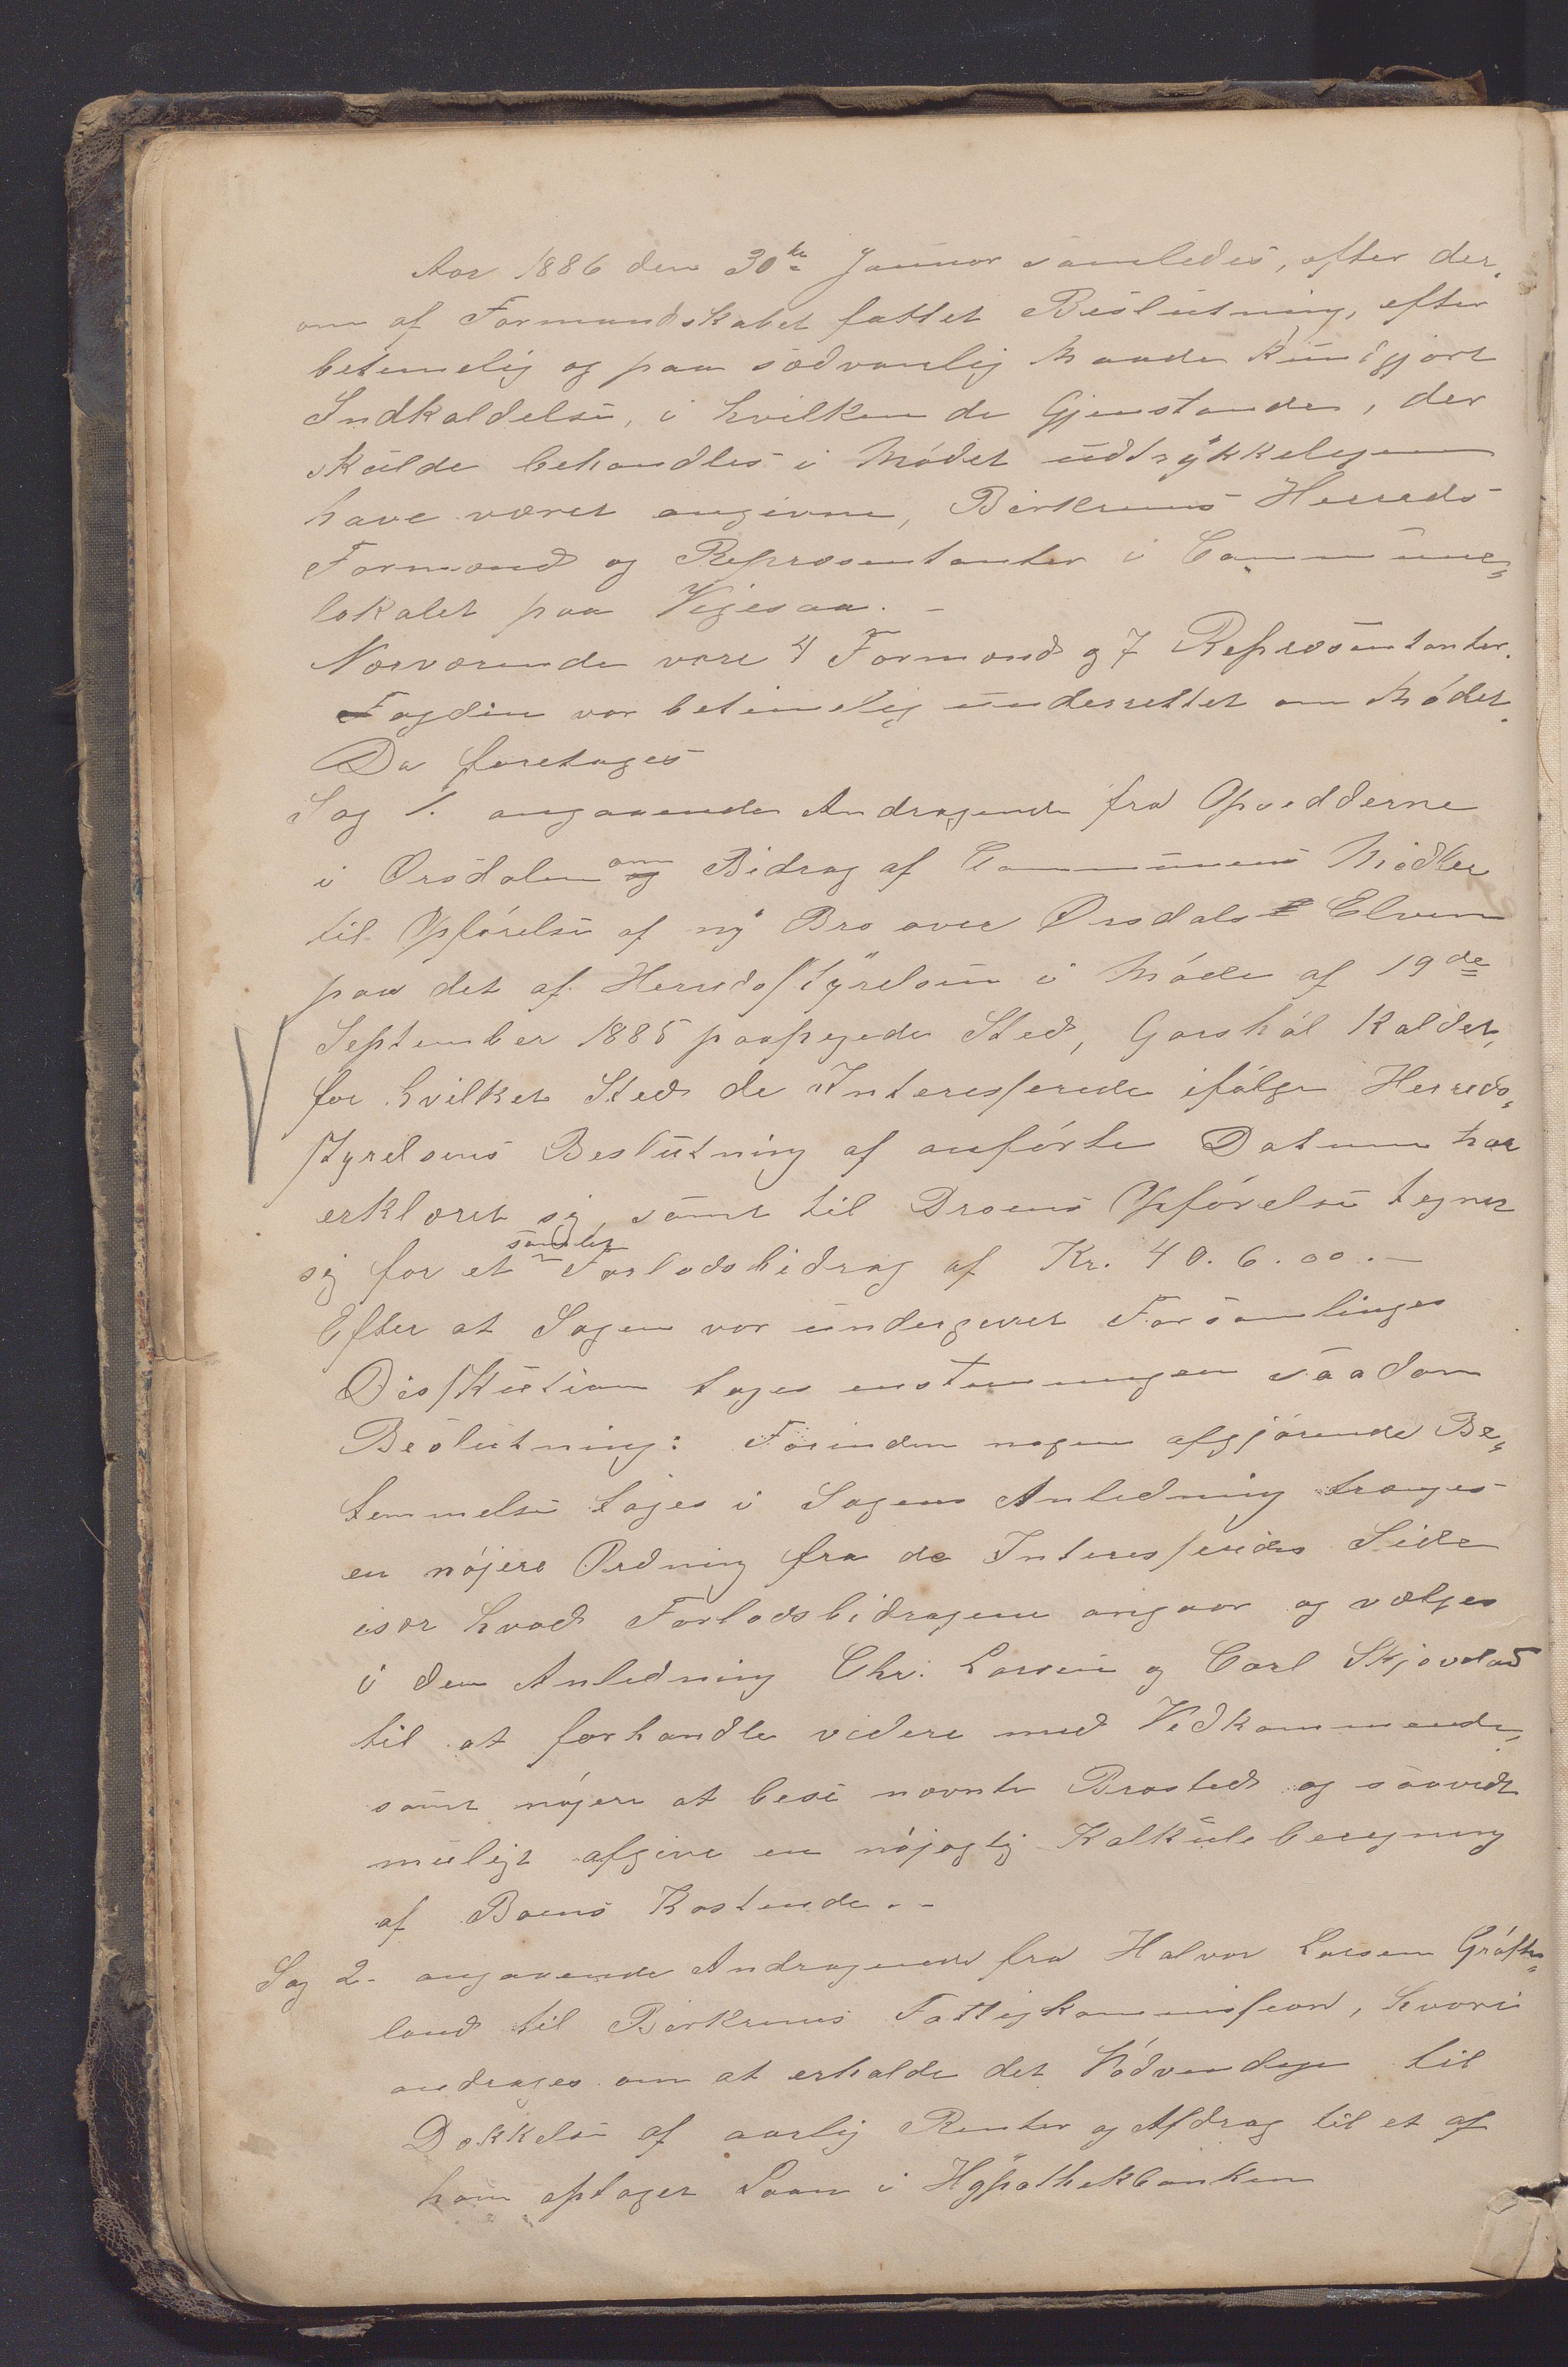 Aar 1886 den 30te Januar samledes, efter der-
om af Formandskabet fattet Beslutning, efter
betimelig og paa sædvanlig Maade kundgjort
Indkaldelse, i hvilken de Gjenstande, der
skulde behandles i Mødet uddrykkeligen
have været angivne, Birkrems Herreds
Formænd og Repræsentanter i Commune-
lokalet paa Vigesaa. -
Nærværende vare 4 Formænd og 7 Repræsentanter.
Fogden var betimelig underrettet om Mødet.
Da foretoges
Sag 1. angaaende Andragende fra Opsidderne
i Ørsdalen om Bidrag af Communens Midler
til Opførelse af ny Bro over Ørsdals Elven
paa det af Herredsstyrelsen i Møde af 19de
September 1885 paapegede Sted, Gaashøl kaldet,
for hvilket Sted de Interesserede ifølge Herreds-
styrelsens Beslutning af anførte Datum har
erklæret sig, samt til Broens Opførelse tegnet
sig for et samlet Forlodsbidrag af Kr. 40.6.00.-
Efter at Sagen var undergivet Forsamlinges
Diskution toges enstemmigen saadan
Beslutning: Forinden nogen afgjørende Be-
temmelse tages i Sagens Anledning trænges
en nøjere Ordning fra de Interesseredes Side
især hvad Forlodsbidragene angaar og vælges
i den Anledning Chr. Larsen og Carl Skjævelad
til at forhandle videre med Vedkommende,
samt nøjere at bese nævnte Brosted og saavidt
muligt afgive en nøjagtig Kalkuleberegning
af Boens Kostende. -
Sag 2. angaaende Andragende fra Halvor Larsen Grøfte-
land til Birkrems Fattigkommission, hvori
andrages om at erholde det Nødvendige til
Dækkelse af aarlig Renter og Afdrag til et af
ham optaget Laan i Hypothekbanken